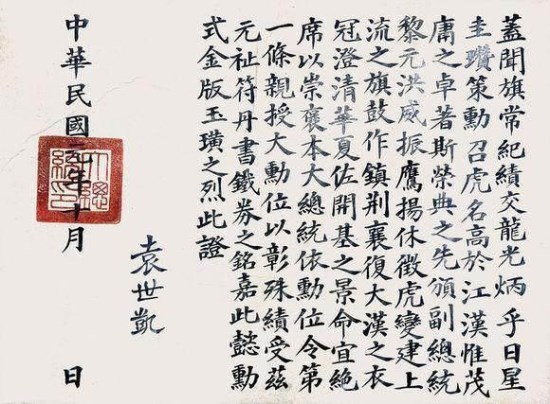 蓋聞旗常紀績交龍光炳乎日星
圭瓚策勳召虎名高於江漢惟茂
庸之卓著斯榮典之先頒副總統
黎元洪威振鷹揚休徵虎變建上
流之旗鼓作鎮荆襄復大漢之衣
冠澄清華夏佐開基之景命宜絕
席以崇襃本大總統依勳位令第
一條親授大勳位以彰殊績受茲
元祉符丹書鐵券之銘嘉此懿勳
式金版玉璜之烈此證
袁世凱
中華民國元年十月 日
大總統印